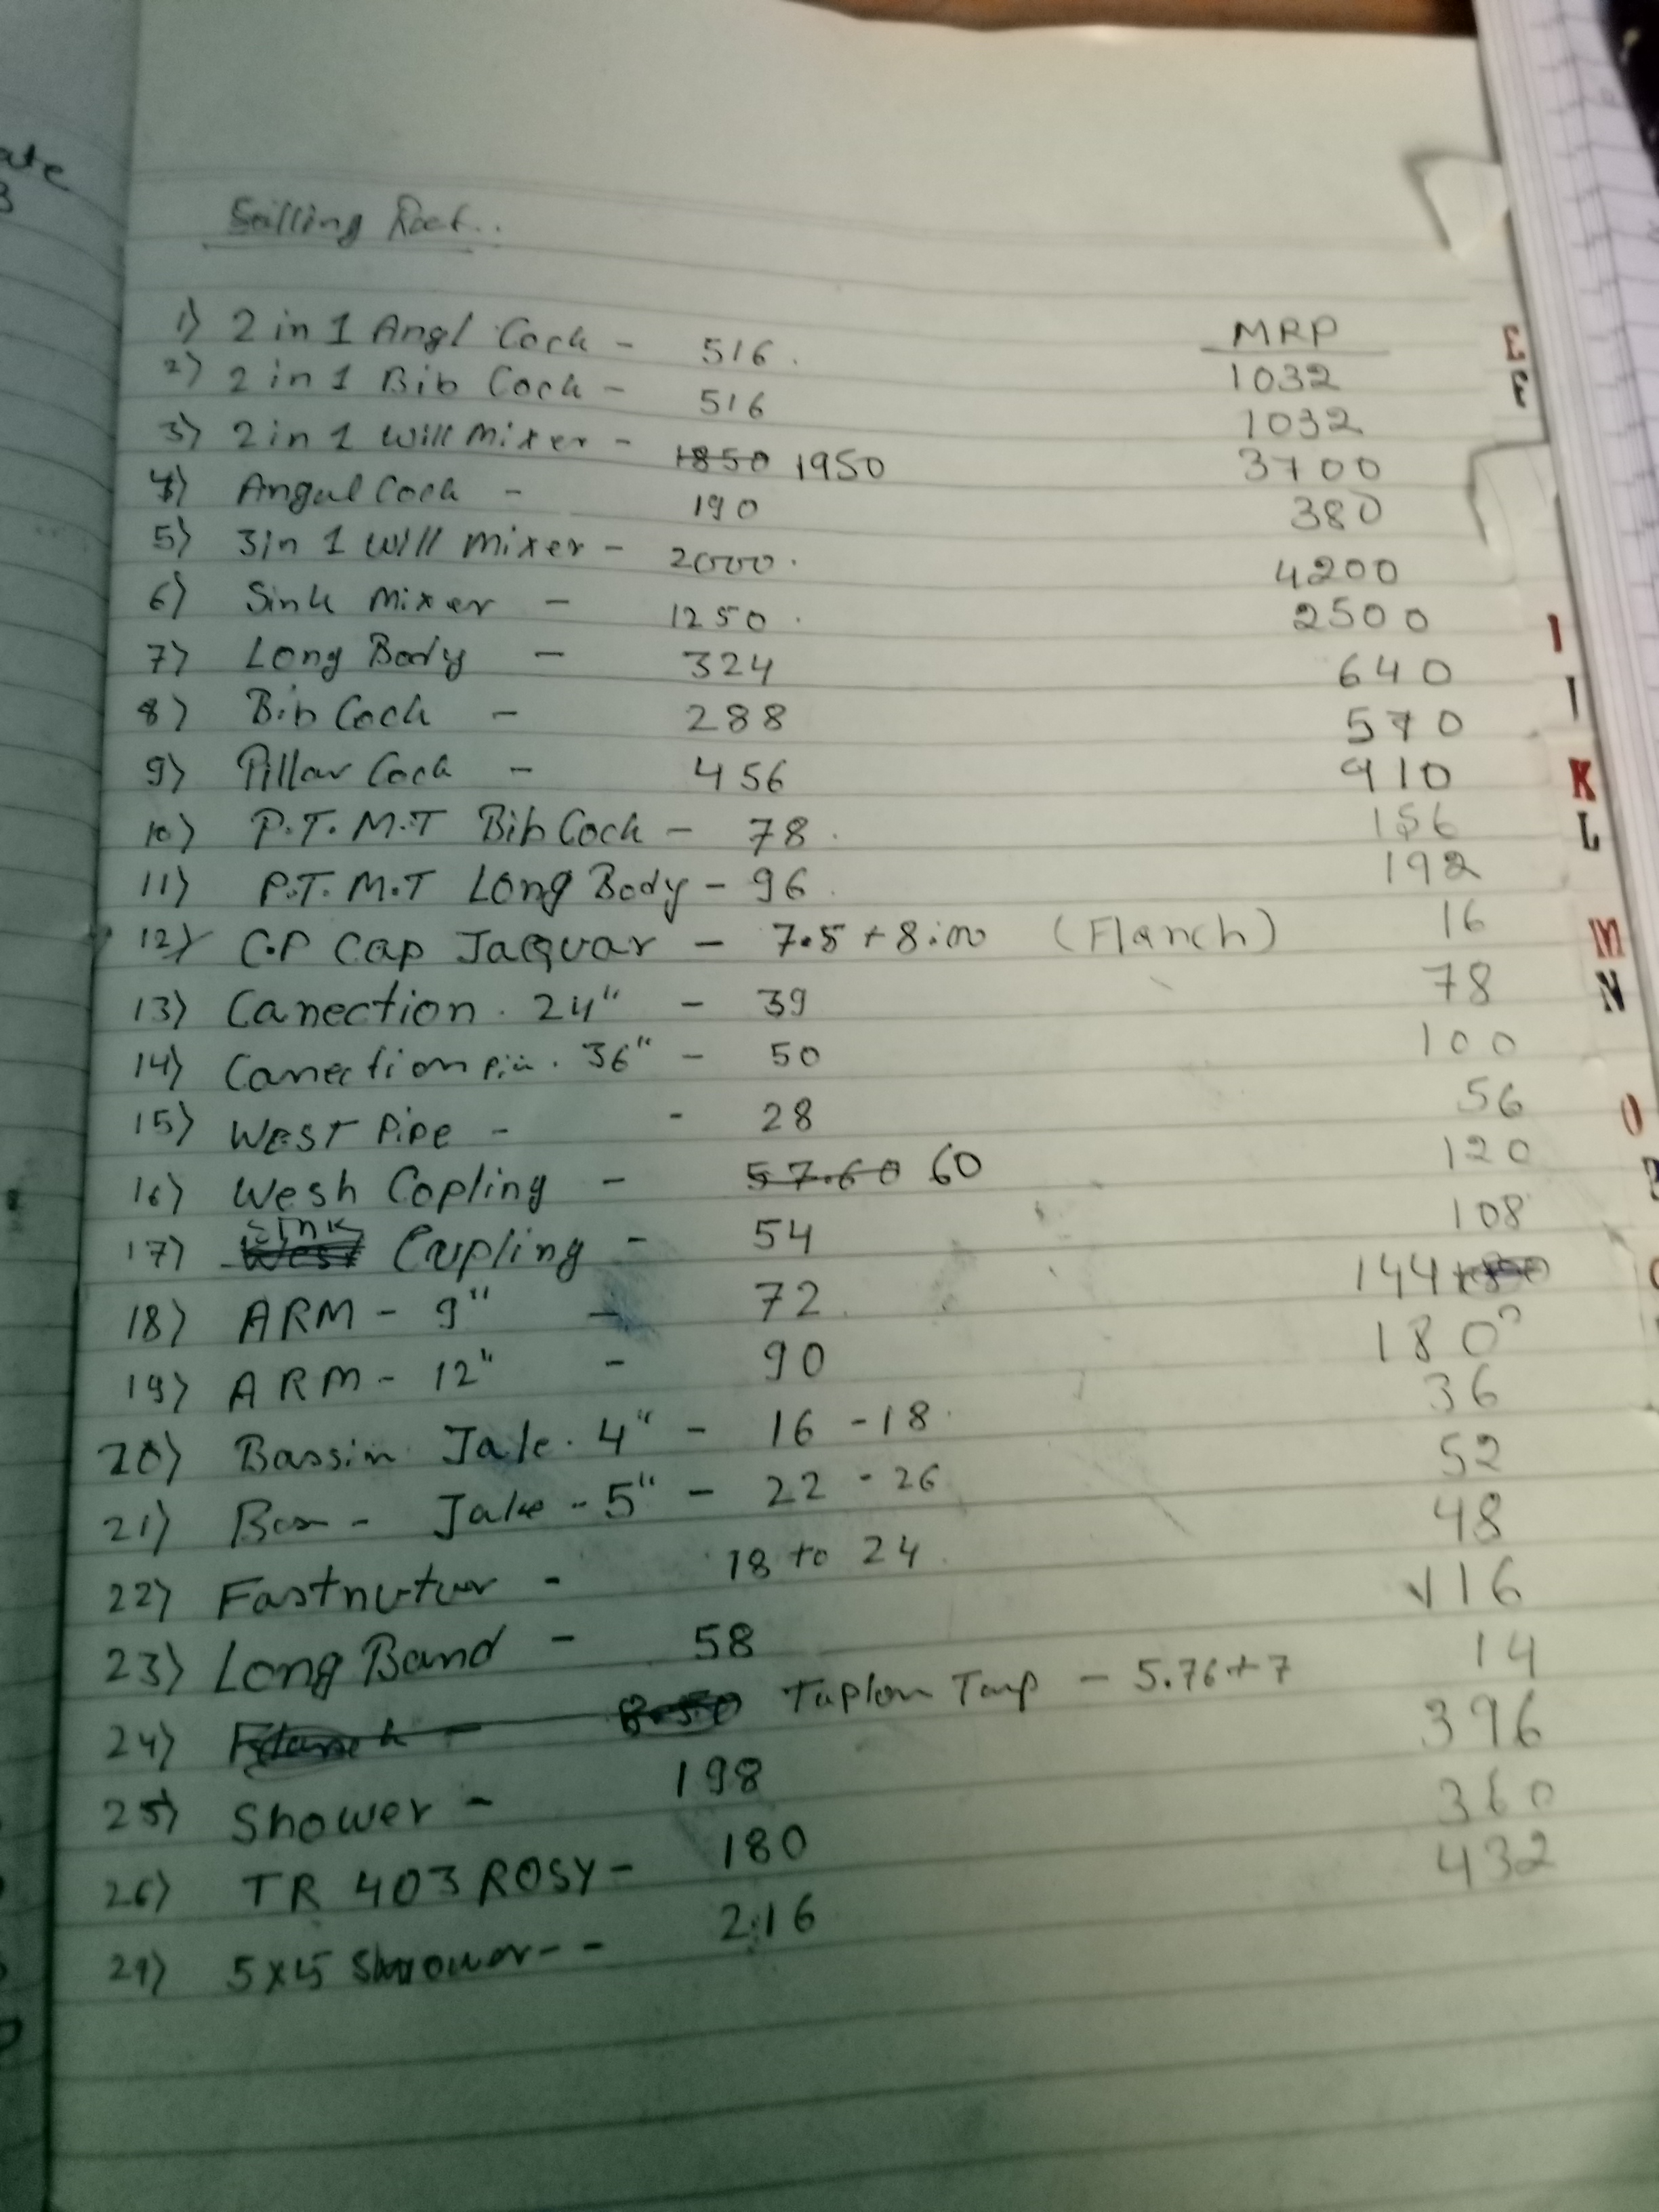 Seilling Raet..
MRP
1) 2 in 1 Angl Cock - 516. 1032
2) 2 in 1 Bib Cock - 516 1032
3) 2 in 1 Will Mixer - 1850 1950 3700
4) Angul Cock - 190 380
5) 3in 1 Will Mixer - 2000. 4200
6) Sink Mixer - 1250. 2500
7) Long Body - 324 640
8) Bib Cock - 288 570
9) Pillar Cock - 456 910
10) P.T.M.T Bib Cock - 78. 156
11) P.T.M.T Long Body - 96. 192
12) C.P Cap Jaquar - 7.5 + 8.00 (Flanch) 16
13) Canection. 24" - 39 78
14) Canection 36" - 50 100
15) WEST Pipe - - 28 56
16) Wesh Copling - 57.60 60 120
17) West Sink Cupling - 54 108
18) ARM - 9" - 72. 144
19) ARM - 12" - 90 180
20) Bassin Jale. 4" - 16 - 18 36
21) Jale - 5" - 22 - 26 52
22) Fastnutur - 18 to 24. 48
23) Long Band - 58 116
24) Flanch - 8.50 Taplon Tap - 5.76+7 14
25) Shower - 198 396
26) TR 403 ROSY - 180 360
27) 5x5 Shower - - 216 432
ate
3
E
F
I
I
K
L
M
N
O